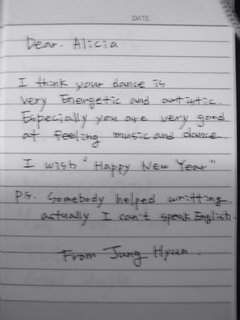 DATE
Dear. Alicia
I think your dance is
very Energetic and artistic.
Especially you are very good
at feeling music and dance.
I wish "Happy New Year"
P.S. Somebody helped writting
actually I can't speak English.
From Jang Hyun.